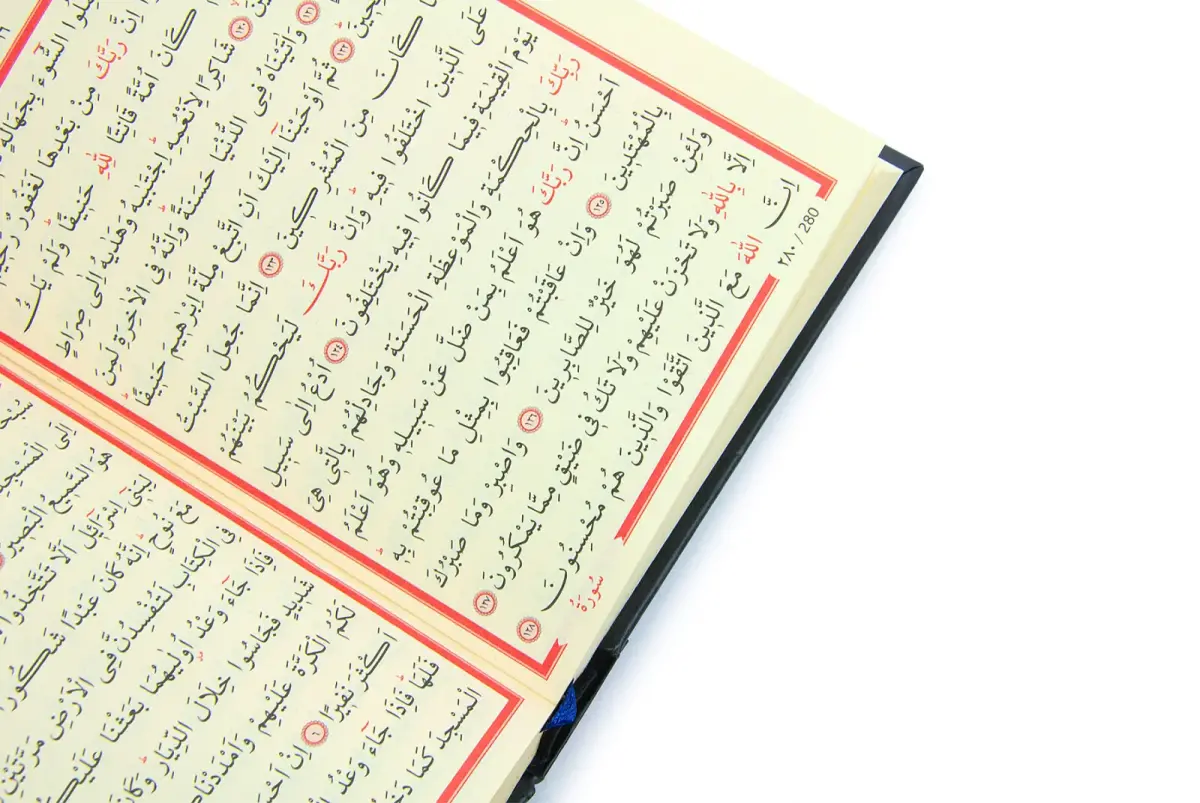 السُّٓوءَ بِجَهَالَةٍ
اِنَّ رَبَّكَ مِنْ بَعْدِهَا لَغَفُورٌ رَحِيمٌ
كَانَ اُمَّةً قَانِتًا لِلّٰهِ حَنِيفًا وَلَمْ يَكُ
١٢٠ شَاكِرًا لِاَنْعُمِهِ اِجْتَبٰيهُ وَهَدٰيهُ اِلٰى صِرَاطٍ
١٢١ وَاٰتَيْنَاهُ فِى الدُّنْيَا حَسَنَةً وَاِنَّهُ فِى الْاٰخِرَةِ لَمِنَ
١٢٢ ثُمَّ اَوْحَيْنَٓا اِلَيْكَ اَنِ اتَّبِعْ مِلَّةَ اِبْرٰهِيمَ حَنِيفًا
كَانَ مِنَ الْمُشْرِكِينَ ١٢٣ اِنَّمَا جُعِلَ السَّبْتُ
عَلَى الَّذِينَ اخْتَلَفُوا فِيهِ وَاِنَّ رَبَّكَ لَيَحْكُمُ بَيْنَهُمْ
يَوْمَ الْقِيٰمَةِ فِيمَا كَانُوا فِيهِ يَخْتَلِفُونَ ١٢٤ اُدْعُ اِلٰى سَبِيلِ
رَبِّكَ بِالْحِكْمَةِ وَالْمَوْعِظَةِ الْحَسَنَةِ وَجَادِلْهُمْ بِالَّتِى هِىَ
اَحْسَنُ اِنَّ رَبَّكَ هُوَ اَعْلَمُ بِمَنْ ضَلَّ عَنْ سَبِيلِهِ وَهُوَ اَعْلَمُ
بِالْمُهْتَدِينَ ١٢٥ وَاِنْ عَاقَبْتُمْ فَعَاقِبُوا بِمِثْلِ مَا عُوقِبْتُمْ بِهِ
وَلَئِنْ صَبَرْتُمْ لَهُوَ خَيْرٌ لِلصَّابِرِينَ ١٢٦ وَاصْبِرْ وَمَا صَبْرُكَ
اِلَّا بِاللّٰهِ وَلَا تَحْزَنْ عَلَيْهِمْ وَلَا تَكُ فِى ضَيْقٍ مِمَّا يَمْكُرُونَ ١٢٧
اِنَّ اللّٰهَ مَعَ الَّذِينَ اتَّقَوْا وَالَّذِينَ هُمْ مُحْسِنُونَ ١٢٨
٢٨٠ / 280
سُورَةُ
اِلَى الْمَسْجِدِ
هُوَ السَّمِيعُ الْبَصِيرُ
لِبَنِٓى اِسْرَٓائِلَ اَلَّا تَتَّخِذُوا
مَعَ نُوحٍ اِنَّهُ كَانَ عَبْدًا شَكُورًا
فِى الْكِتَابِ لَتُفْسِدُنَّ فِى الْاَرْضِ مَرَّتَيْنِ
فَاِذَا جَٓاءَ وَعْدُ اُو۫لٰيهُمَا بَعَثْنَا عَلَيْكُ
شَدِيدٍ فَجَاسُوا خِلَالَ الدِّيَارِ وَكَانَ
لَكُمُ الْكَرَّةَ عَلَيْهِمْ وَاَمْدَدْنَاكُ
اَكْثَرَ نَفِيرًا ٦ اِنْ اَحْسَ
فَلَهَا فَاِذَا جَٓاءَ وَعْدُ
الْمَسْجِدَ كَمَا دَخَ